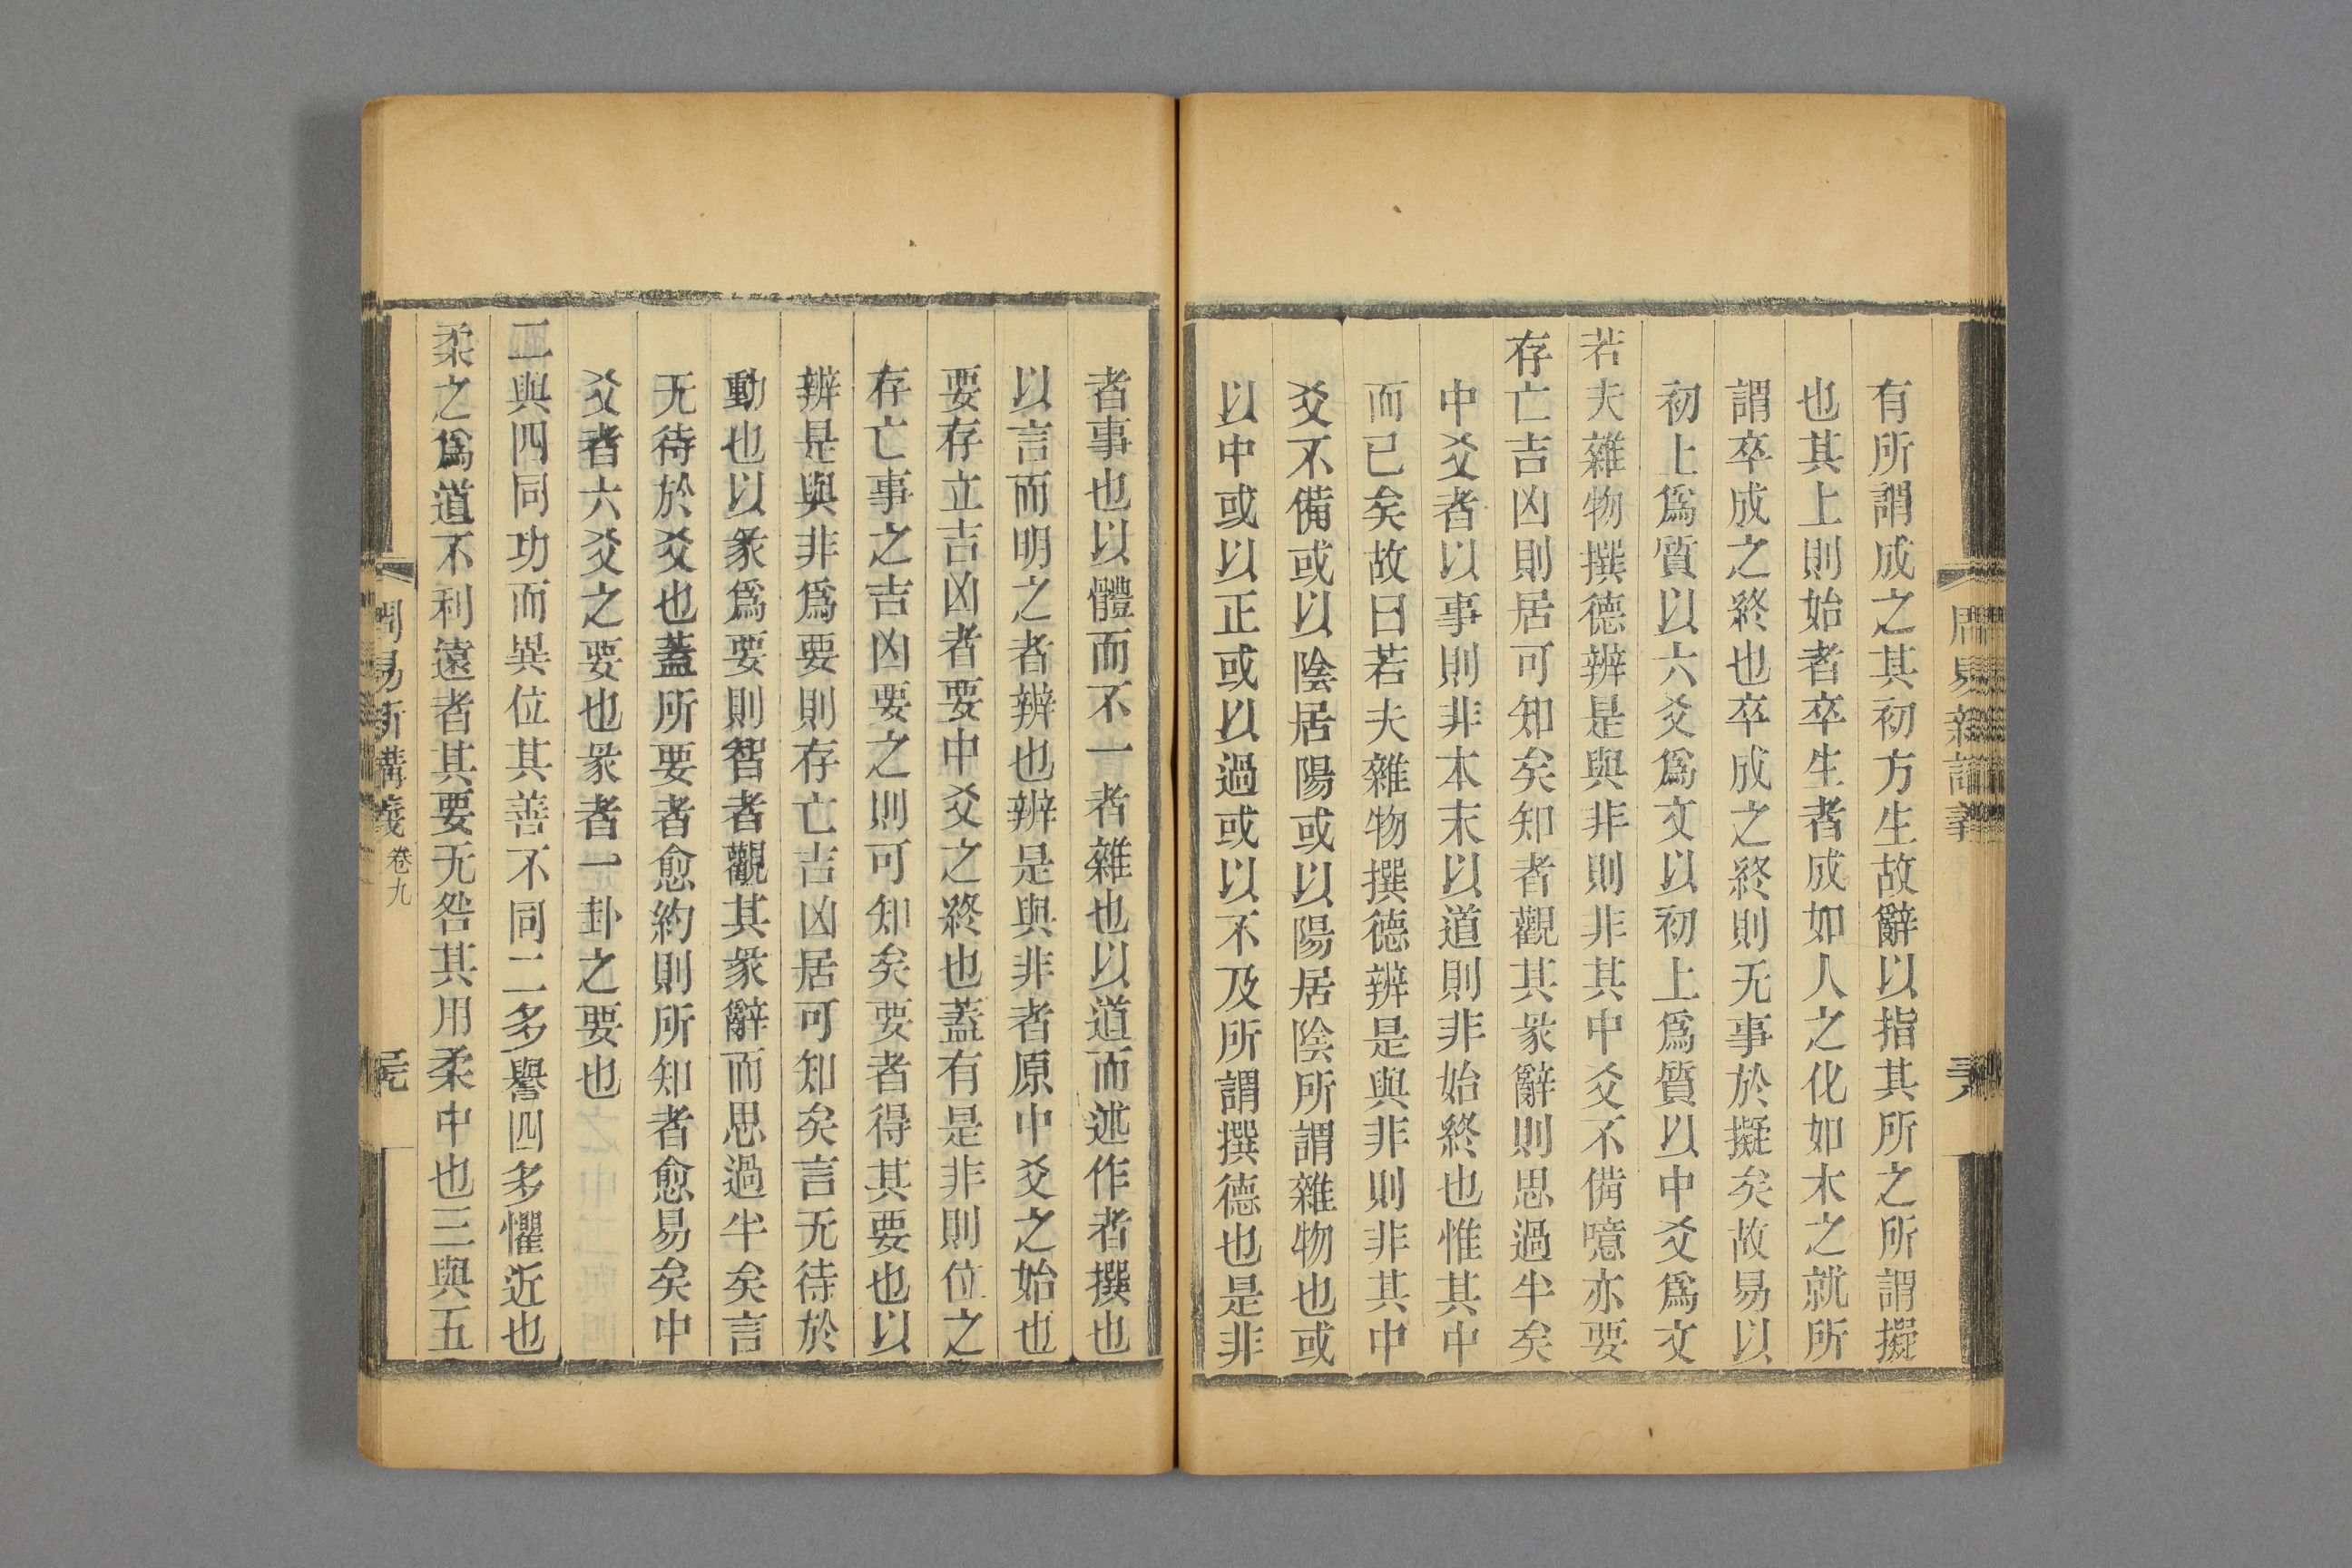 有所謂成之其初方生故辭以指其所之所謂擬
也其上則始者卒生者成如人之化如木之就所
謂卒成之終也卒成之終則无事於擬矣故易以
初上爲質以六爻爲文以初上爲質以中爻爲文
若夫雜物撰德辨是與非則非其中爻不備噫亦要
存亡吉凶則居可知矣知者觀其彖辭則思過半矣
中爻者以事則非本末以道則非始終也惟其中
而已矣故曰若夫雜物撰德辨是與非則非其中
爻不備或以陰居陽或以陽居陰所謂雜物也或
以中或以正或以過或以不及所謂撰德也是非
者事也以體而不一者雜也以道而述作者撰也
以言而明之者辨也辨是與非者原中爻之始也
要存立吉凶者要中爻之終也蓋有是非則位之
存亡事之吉凶要之則可知矣要者得其要也以
辨是與非爲要則存亡吉凶居可知矣言无待於
動也以彖爲要則智者觀其彖辭而思過半矣言
无待於爻也蓋所要者愈約則所知者愈易矣中
爻者六爻之要也彖者一卦之要也
二與四同功而異位其善不同二多譽四多懼近也
柔之爲道不利遠者其要无咎其用柔中也三與五
周易新講義 卷九